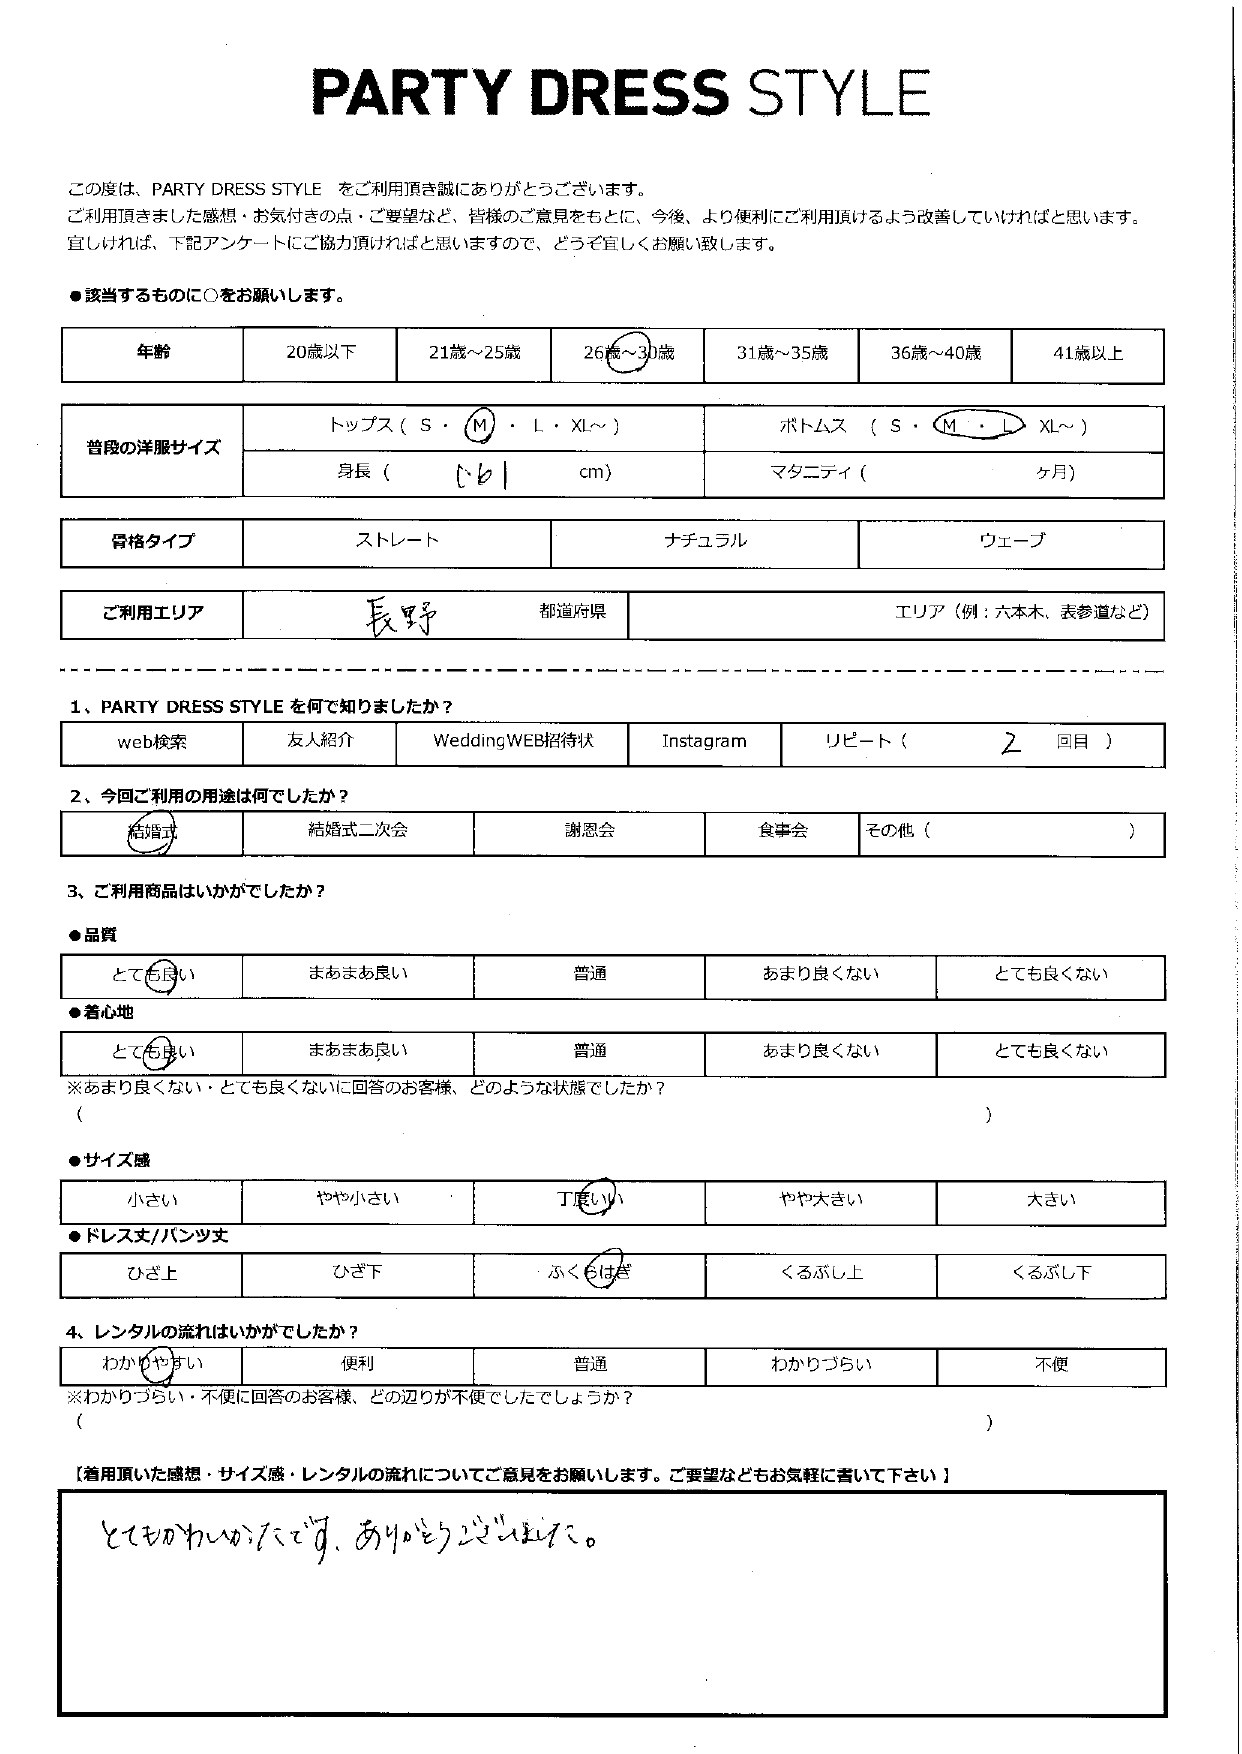 PARTY DRESS STYLE
この度は、PARTY DRESS STYLE をご利用頂き誠にありがとうございます。
ご利用頂きました感想・お気付きの点・ご要望など、皆様のご意見をもとに、今後、より便利にご利用頂けるよう改善していければと思います。
宜しければ、下記アンケートにご協力頂ければと思いますので、どうぞ宜しくお願い致します。
●該当するものに○をお願いします。
年齢 20歳以下 21歳～25歳 26歳～30歳 31歳～35歳 36歳～40歳 41歳以上
普段の洋服サイズ トップス ( S ・ M ・ L ・ XL～ ) ボトムス ( S ・ M ・ L XL～ )
身長 ( 161 cm) マタニティ ( ヶ月)
骨格タイプ ストレート ナチュラル ウェーブ
ご利用エリア 長野 都道府県 エリア（例：六本木、表参道など）
1、PARTY DRESS STYLE を何で知りましたか？
web検索 友人紹介 WeddingWEB招待状 Instagram リピート（ 2 回目 ）
2、今回ご利用の用途は何でしたか？
結婚式 結婚式二次会 謝恩会 食事会 その他（ ）
3、ご利用商品はいかがでしたか？
●品質
とても良い まあまあ良い 普通 あまり良くない とても良くない
●着心地
とても良い まあまあ良い 普通 あまり良くない とても良くない
※あまり良くない・とても良くないに回答のお客様、どのような状態でしたか？
（ ）
●サイズ感
小さい やや小さい 丁度いい やや大きい 大きい
●ドレス丈/パンツ丈
ひざ上 ひざ下 ふくらはぎ くるぶし上 くるぶし下
4、レンタルの流れはいかがでしたか？
わかりやすい 便利 普通 わかりづらい 不便
※わかりづらい・不便に回答のお客様、どの辺りが不便でしたでしょうか？
（ ）
【着用頂いた感想・サイズ感・レンタルの流れについてご意見をお願いします。ご要望などもお気軽に書いて下さい】
とてもかわいかたです、ありがとうございました。